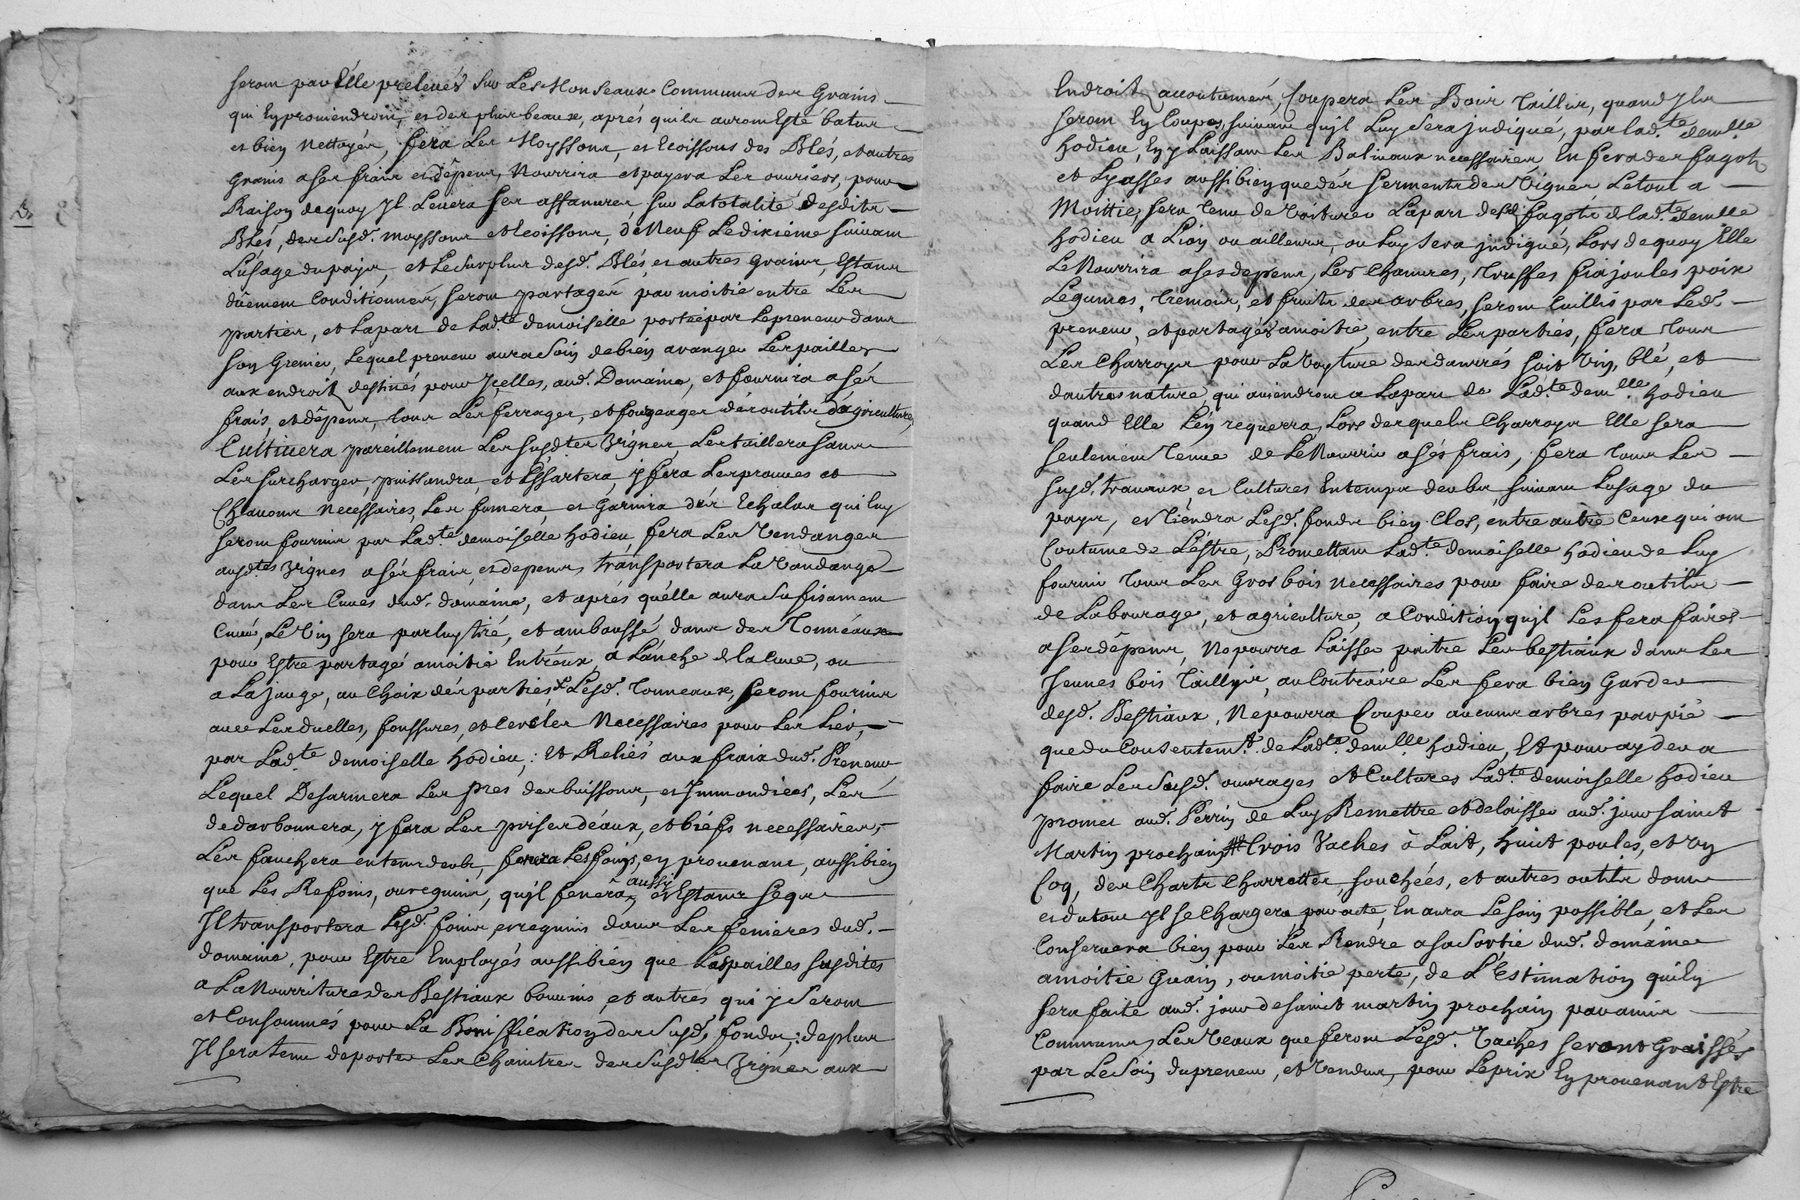 seront par Elle prelevés sur Les Monseaux Communs des Grains
qui En proviendront, et des plus beaux, aprés qu'ils auront Esté batus
et bien Nettoyés, fera Les Moyssons, et Ecoissons des Blés, et autres
Grains a ses frais et dêpens, Nourrira et payera Les ouvriers, pour
Raison dequoy Jl Levera Ses affanures sur La totalité desdits
Blés, des susd. moyssons et Ecoissons, de Neuf Le dixiéme suivant
L'usage du pays, et Le surplus desd. Blés, et autres Grains, Estants
dûement Conditionnés, seront partagés par moitié entre Les
parties, et La part de Lad.te demoiselle portée par Le preneur dans
son Grenier, Lequel preneur aura soin de bien aranger Les pailles
aux endroits destinés pour Jcelles, aud. Domaine, et fournira a ses
frais, et dêpens, tous Les ferrages, et fougeages des outils d'agriculture,
Cultivera pareillement Les susd.tes Vignes, Les taillera sans
Les surcharger, puissandra, et Essartera, y fera Les provins et
Chavons Necessaires, Les fumera et Garnira des Echalas qui luy
seront fournis par Lad.te demoiselle hodieu, fera Les Vendanges
ausd.tes Vignes a ses frais, et depens, transportera La Vandange
dans Les Cuves dud. domaine, et aprés qu'elle aura sufisament
Cuvé, Le Vin sera par luy tiré, et amboussé dans des Tonneaux
pour Estre partagé a moitié Entr'eux, a L'anche de la Cuve, ou
a La jauge, au Choix des parties Lesd. Tonneaux seront fournis
avec Les duelles, fonssures, et Cercles Necessaires pour Les Lier,
par Lad.te demoiselle hodieu; Et Reliés aux frais dud. Preneur
Lequel Desarmera Les pres des buissons, et Jmmondices, Les
dedarbonnera, y fera Les prises d'eaux, et biéfs necessaires,
Les fauchera en tems deub, fenera Les foins, en provenant, aussi bien
que Les Refoins, ou reguins, qu'il fenera, aussi et Estants Seqs
Jl transportera Lesd. foins, et reguins dans Les fenières dud.
domaine, pour Estre Employés aussi bien que Les pailles susdites
a La Nourriture des Bestiaux bovins, et autres qui y Seront
et Consommés pour La Bonisffication des susd. fonds; de plus
Jl sera tenu de porter Les Chaintres des susd.tes Vignes aux
Endroits accoutumés, Coupera Les Bois Taillis, quand Jls
seront En Coupes, suivant qu'jl Luy Sera jndiqué, par lad.te demlle
hodieu, En y Laissant Les Balivaux necessaires En fera des fagots
et Lyasses aussi bien que des serments des Vignes Le tout a
Moittié, sera Tenu de Voiturer La part desd. fagots de lad.te demlle
hodieu a Lion ou ailleurs, ou Luy sera jndiqué, Lors de quoy Elle
Le Nourrira a ses depens, Les Chanvres, Truffes fiajoules poix
Legumes, Tremois, et fruits des arbres, seront Cuillis par Led.
preneur, et partagés a moitié, entre Les parties, fera tous
Les Charroys pour La Voyture des danrées soit Vin, blé, et
d'autres nature, qui aviendront a La part de Lad.te dem.lle hodieu
quand Elle L'en requerra, Lors desquels Charroys Elle sera
seulement Tenue de Le Nourrir a ses frais, fera tous Les
susd. travaux et Cultures En temps deubs suivant L'usage du
pays, et tiendra Lesd. fonds bien Clos, entre autre Ceux qui ont
Coutume de L'éstre, Promettant Lad.te demoiselle hodieu de Luy
fournir Tous Les Gros bois necessaires pour faire des outils
de Labourage, et agriculture, a Condition qu'jl Les fera faire
a ses dêpens, Ne pourra Laisser paitre Les bestiaux dans Les
Jeunes bois Taillys, au Contraire Les fera bien Garder
desd. Bestiaux, Ne pourra Couper aucuns arbres par pié
que du Consentem.t de Lad.te demlle hodieu, Et pour ayder a
faire Les susd. ouvrages et Cultures Lad.te demoiselle hodieu
promet aud. Perrin de Luy Remettre et delaisser aud. jour saint
Martin prochain trois Vaches à Lait, huit poules, et un
Coq, des Chars Charrettes, souchées, et autres outils dont
et du tout Jl se Chargera par acte, En aura Le soin possible, et Les
Conservera bien pour Les Rendre a sa Sortie dud. domaine
a moitié Guain, ou moitié perte, de L'Estimation qui En
sera faite aud. jour de saint martin prochain par amis
Communs, Les Veaux que feront Lesd. Vaches seront Graissés
par Le Soin du preneur, et Vendus, pour Le prix En provenant Estre